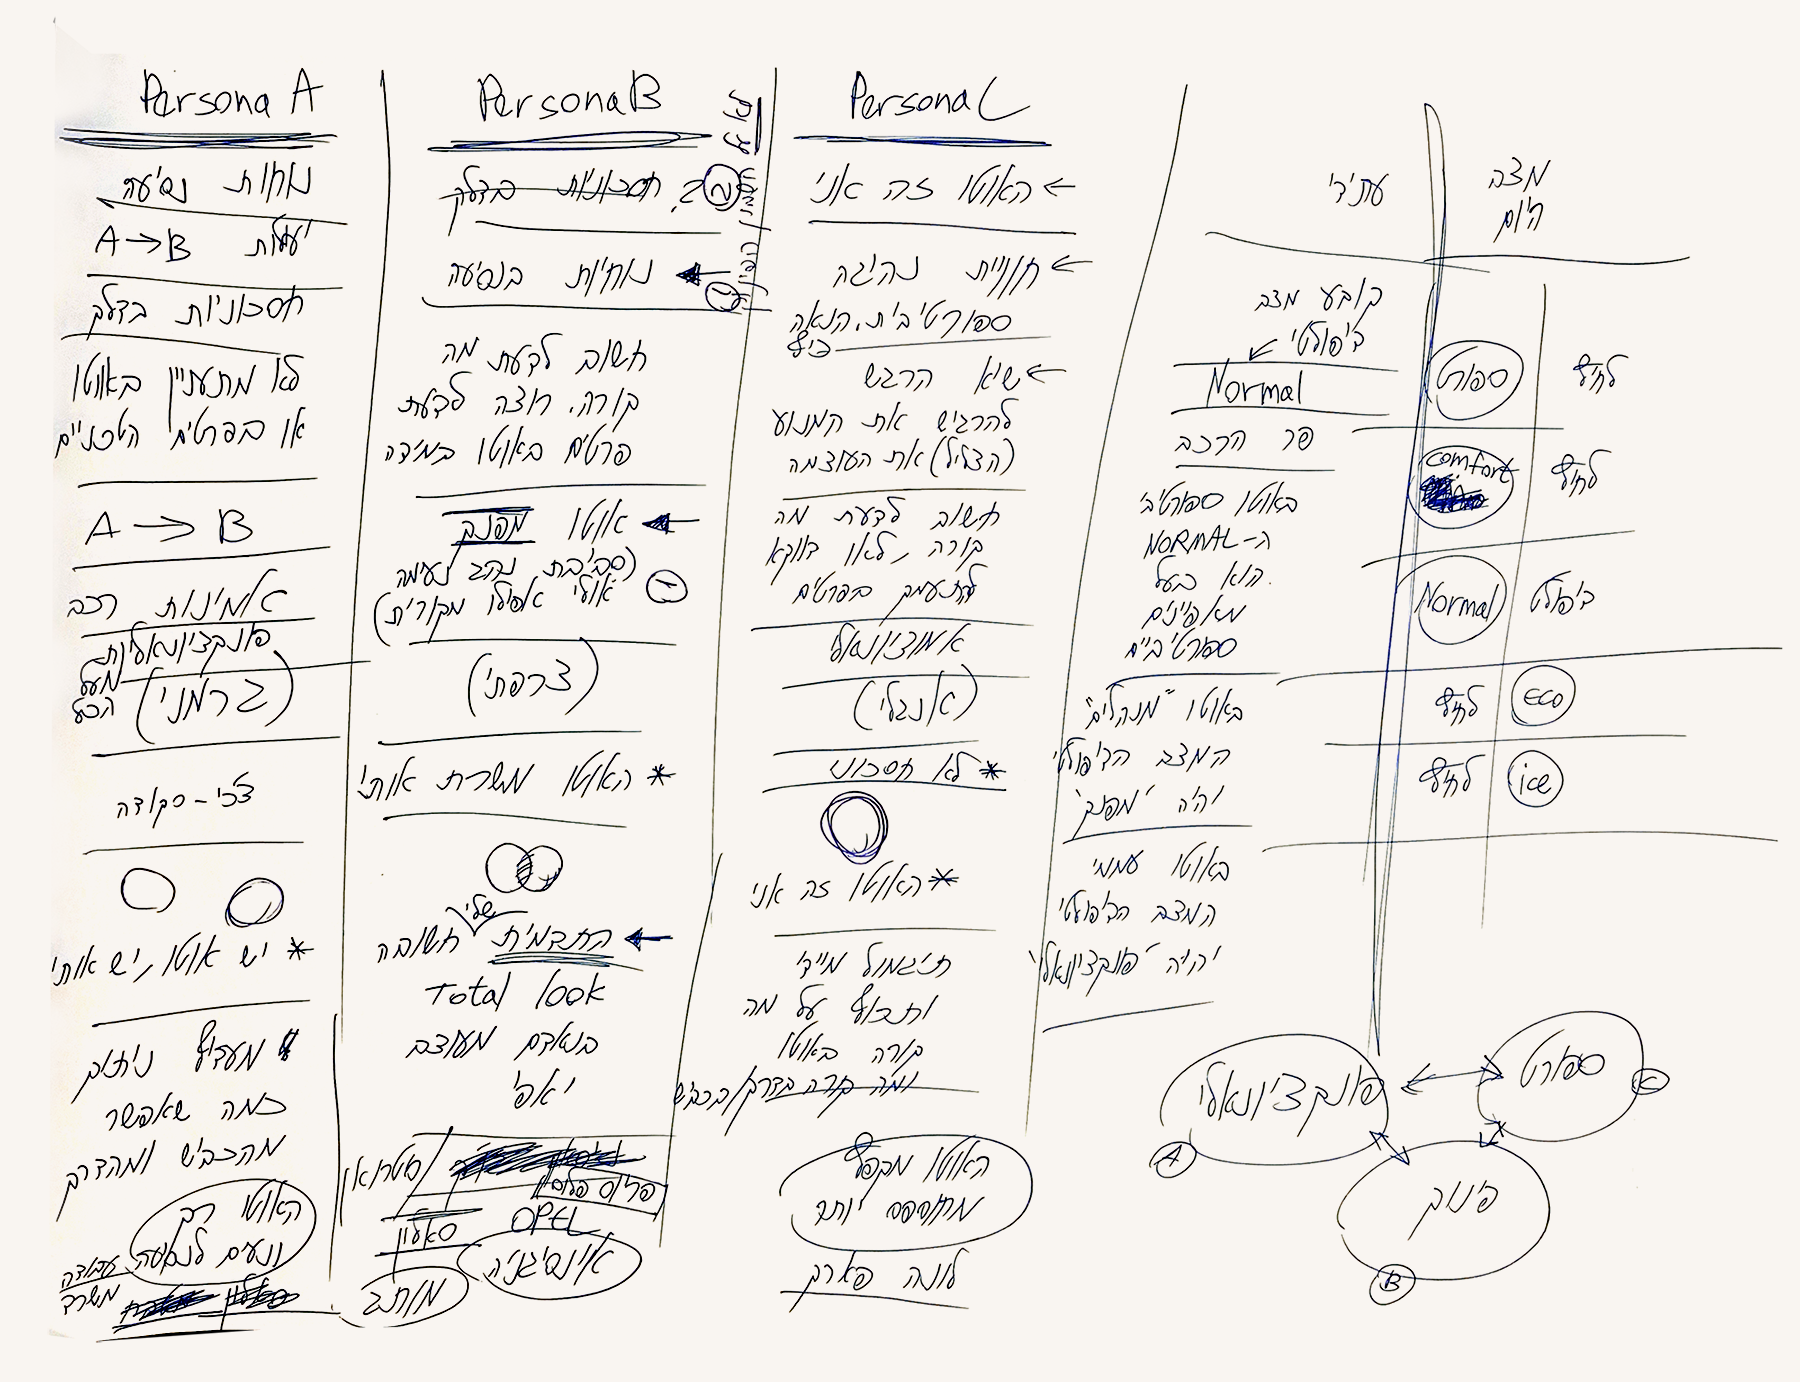 Persona A
נוחות נסיעה
יעילות A→B
חסכוניות בדלק
לא מתעניין באוטו
או בפרטים הטכניים
A → B
אמינות רכב
פונקציונאליות
מעל
הכל
(גרמני)
צ'כי - סקודה
* יש אוטו, יש אותי
מעדיף ניתוק
כמה שאפשר
מהכביש ומהדרך
האוטו רק
ונעים לנסיעה
עבודה
משרד
Persona B
חסכוניות בדלק
נוחיות בנסיעה
חשוב לדעת מה
קורה. רוצה לדעת
פרטים באוטו במידה
אוטו מפנק
(סביבת נהג נעימה
אולי אפילו מקורית)
(צרפתי)
* האוטו משרת אותי
שלי
התדמית חשובה
Total look
בנאדם מעוצב
יאפי
סטרואן
סאלון
OPEL
אינסיגניה
מותג
Persona C
האוטו זה אני ←
חוויית נהיגה ←
ספורטיבית. הנאה
כיף
שיא הרגש ←
להרגיש את המנוע
(הצליל) את העוצמה
חשוב לדעת מה
קורה, לאו דווקא
להתעמק בפרטים
אמוציונאלי
(אנגלי)
* לא חסכוני
* האוטו זה אני
תיגמול מיידי
ותכוף על מה
קורה באוטו
ומה קורה בדרך/בכביש
האוטו מקפל
מחוספס יותר
לונה פארק
עתידי
קובע מצב
דיפולטי
Normal
פר הרכב
באוטו ספורטיבי
ה-NORMAL
הוא בעל
מאפיינים
ספורטיביים
באוטו "מנהלים"
המצב הדיפולטי
יהיה "מפנק"
באוטו עממי
המצב הדיפולטי
יהיה "פונקציונאלי"
מצב
היום
ספורט לחיץ
comfort לחיץ
Normal דיפולט
eco לחיץ
ice לחיץ
ספורט
C
פונקציונאלי
A
פינוק
B